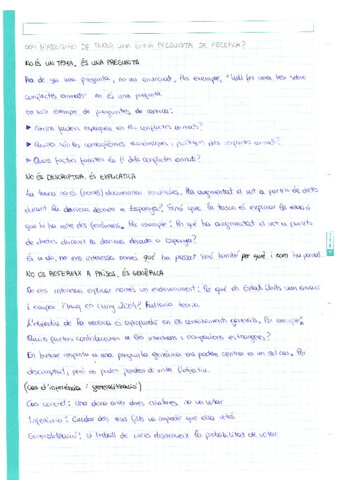 COM M'ASSEGURO DE TENIR UNA BONA PREGUNTA DE RECERCA?
NO ÉS UN TEMA, ÉS UNA PREGUNTA
Ha de ser una pregunta, no un enunciat. Per exemple, "Vull fer una tesi sobre
conflictes armats" no és una pregunta
En són exemple de preguntes de recerca:
Quins factors expliquen els conflictes armats?
Quines són les conseqüències econòmiques i polítiques dels conflictes armats?
Quins factors faciliten la fi dels conflictes armats?
NO ÉS DESCRIPTIVA, ÉS EXPLICATIVA
La tasca no és (només) documentar tendències. Ha augmentat el vot a partits de dretes
durant la darrera dècada a Espanya? Sinó que la tasca és explicar la relació
que hi ha entre dos fenòmens. Per exemple: Per què ha augmentat el vot a partits
de dretes durant la darrera dècada a Espanya?
És a dir, no ens interessa només què ha passat sinó també per què i com ha passat.
NO ES REFEREIX A PAÏSOS, ÉS GENÈRICA
No ens interessa explicar només un esdeveniment: Per què els Estats Units van envair
i ocupar l'Iraq en l'any 2004? Faltaria teoria
L'objectiu de la recerca és aprofundir en els coneixements generals. Per exemple:
Quins factors contribueixen a les invasions i ocupacions estrangeres?
En buscar resposta a una pregunta genèrica ens podem centrar en un sol cas. Pot
descriptiu, però no podem perdre de vista l'objectiu.
(Cas d'inferència i generalització)
Cas concret: Una dona amb dues criatures no va votar
Inferència: Cuidar dels seus fills va impedir que ella votés
Generalització: El treball de cures disminueix la probabilitat de votar